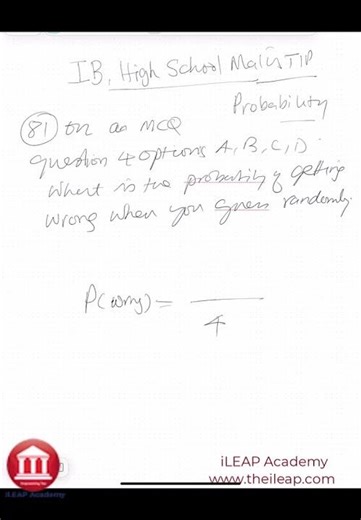 IB, High School Maths TIP
Probability
81) On an MCQ
question 4 options A, B, C, D.
What is the probability of getting
wrong when you guess randomly.
P(wrong) = ———
4
iLEAP Academy
iLEAP Academy
www.theileap.com